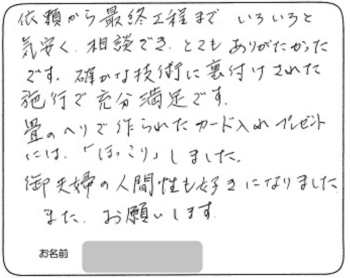 依頼から最終工程まで いろいろと
気安く、相談でき、とても ありがたかった
です。確かな技術に裏付けされた
施行で充分満足です。
畳のヘリで作られたカード入れ プレゼント
には、「ほっこり」しました。
御夫婦の人間性も好きになりました
また、お願いします
お名前